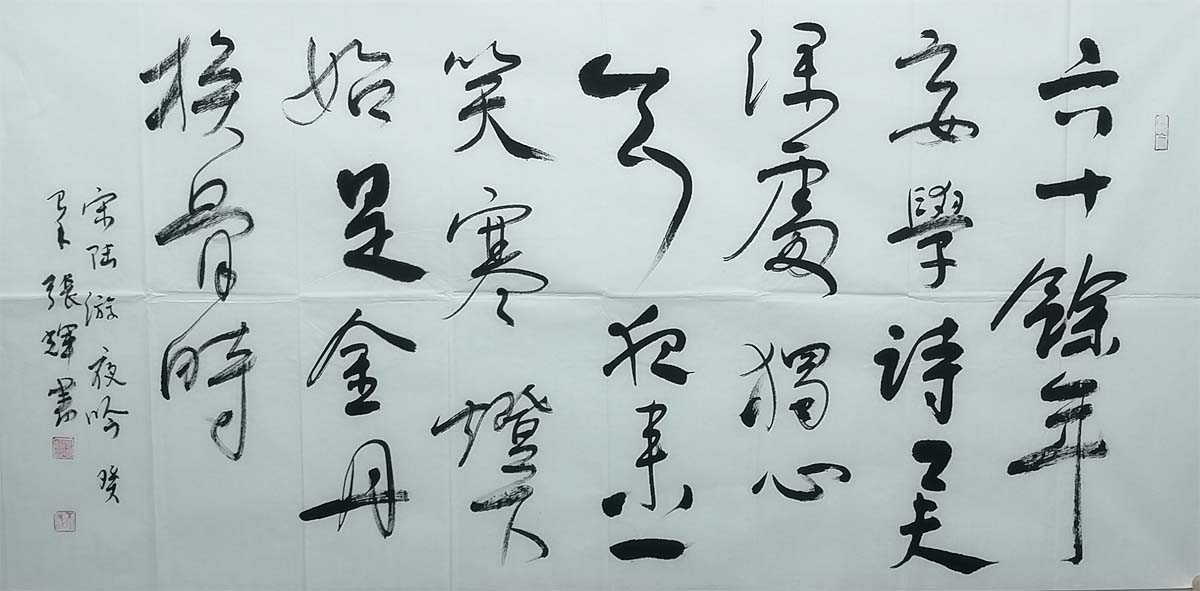 六十餘年
妄學詩工夫
深處獨心
知夜来一
笑寒燈下
始是金丹
换骨時
宋陆游夜吟 癸
卯 張輝書